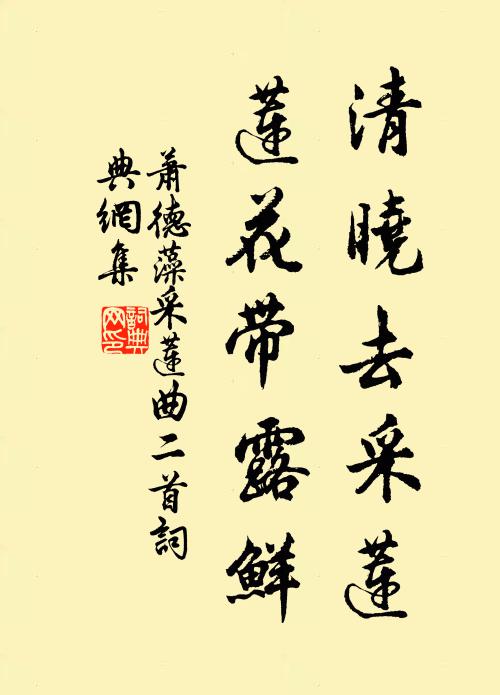 清曉去采蓮
蓮花带露鮮
蕭德藻采蓮曲二首詞
典網集
詞典
网印